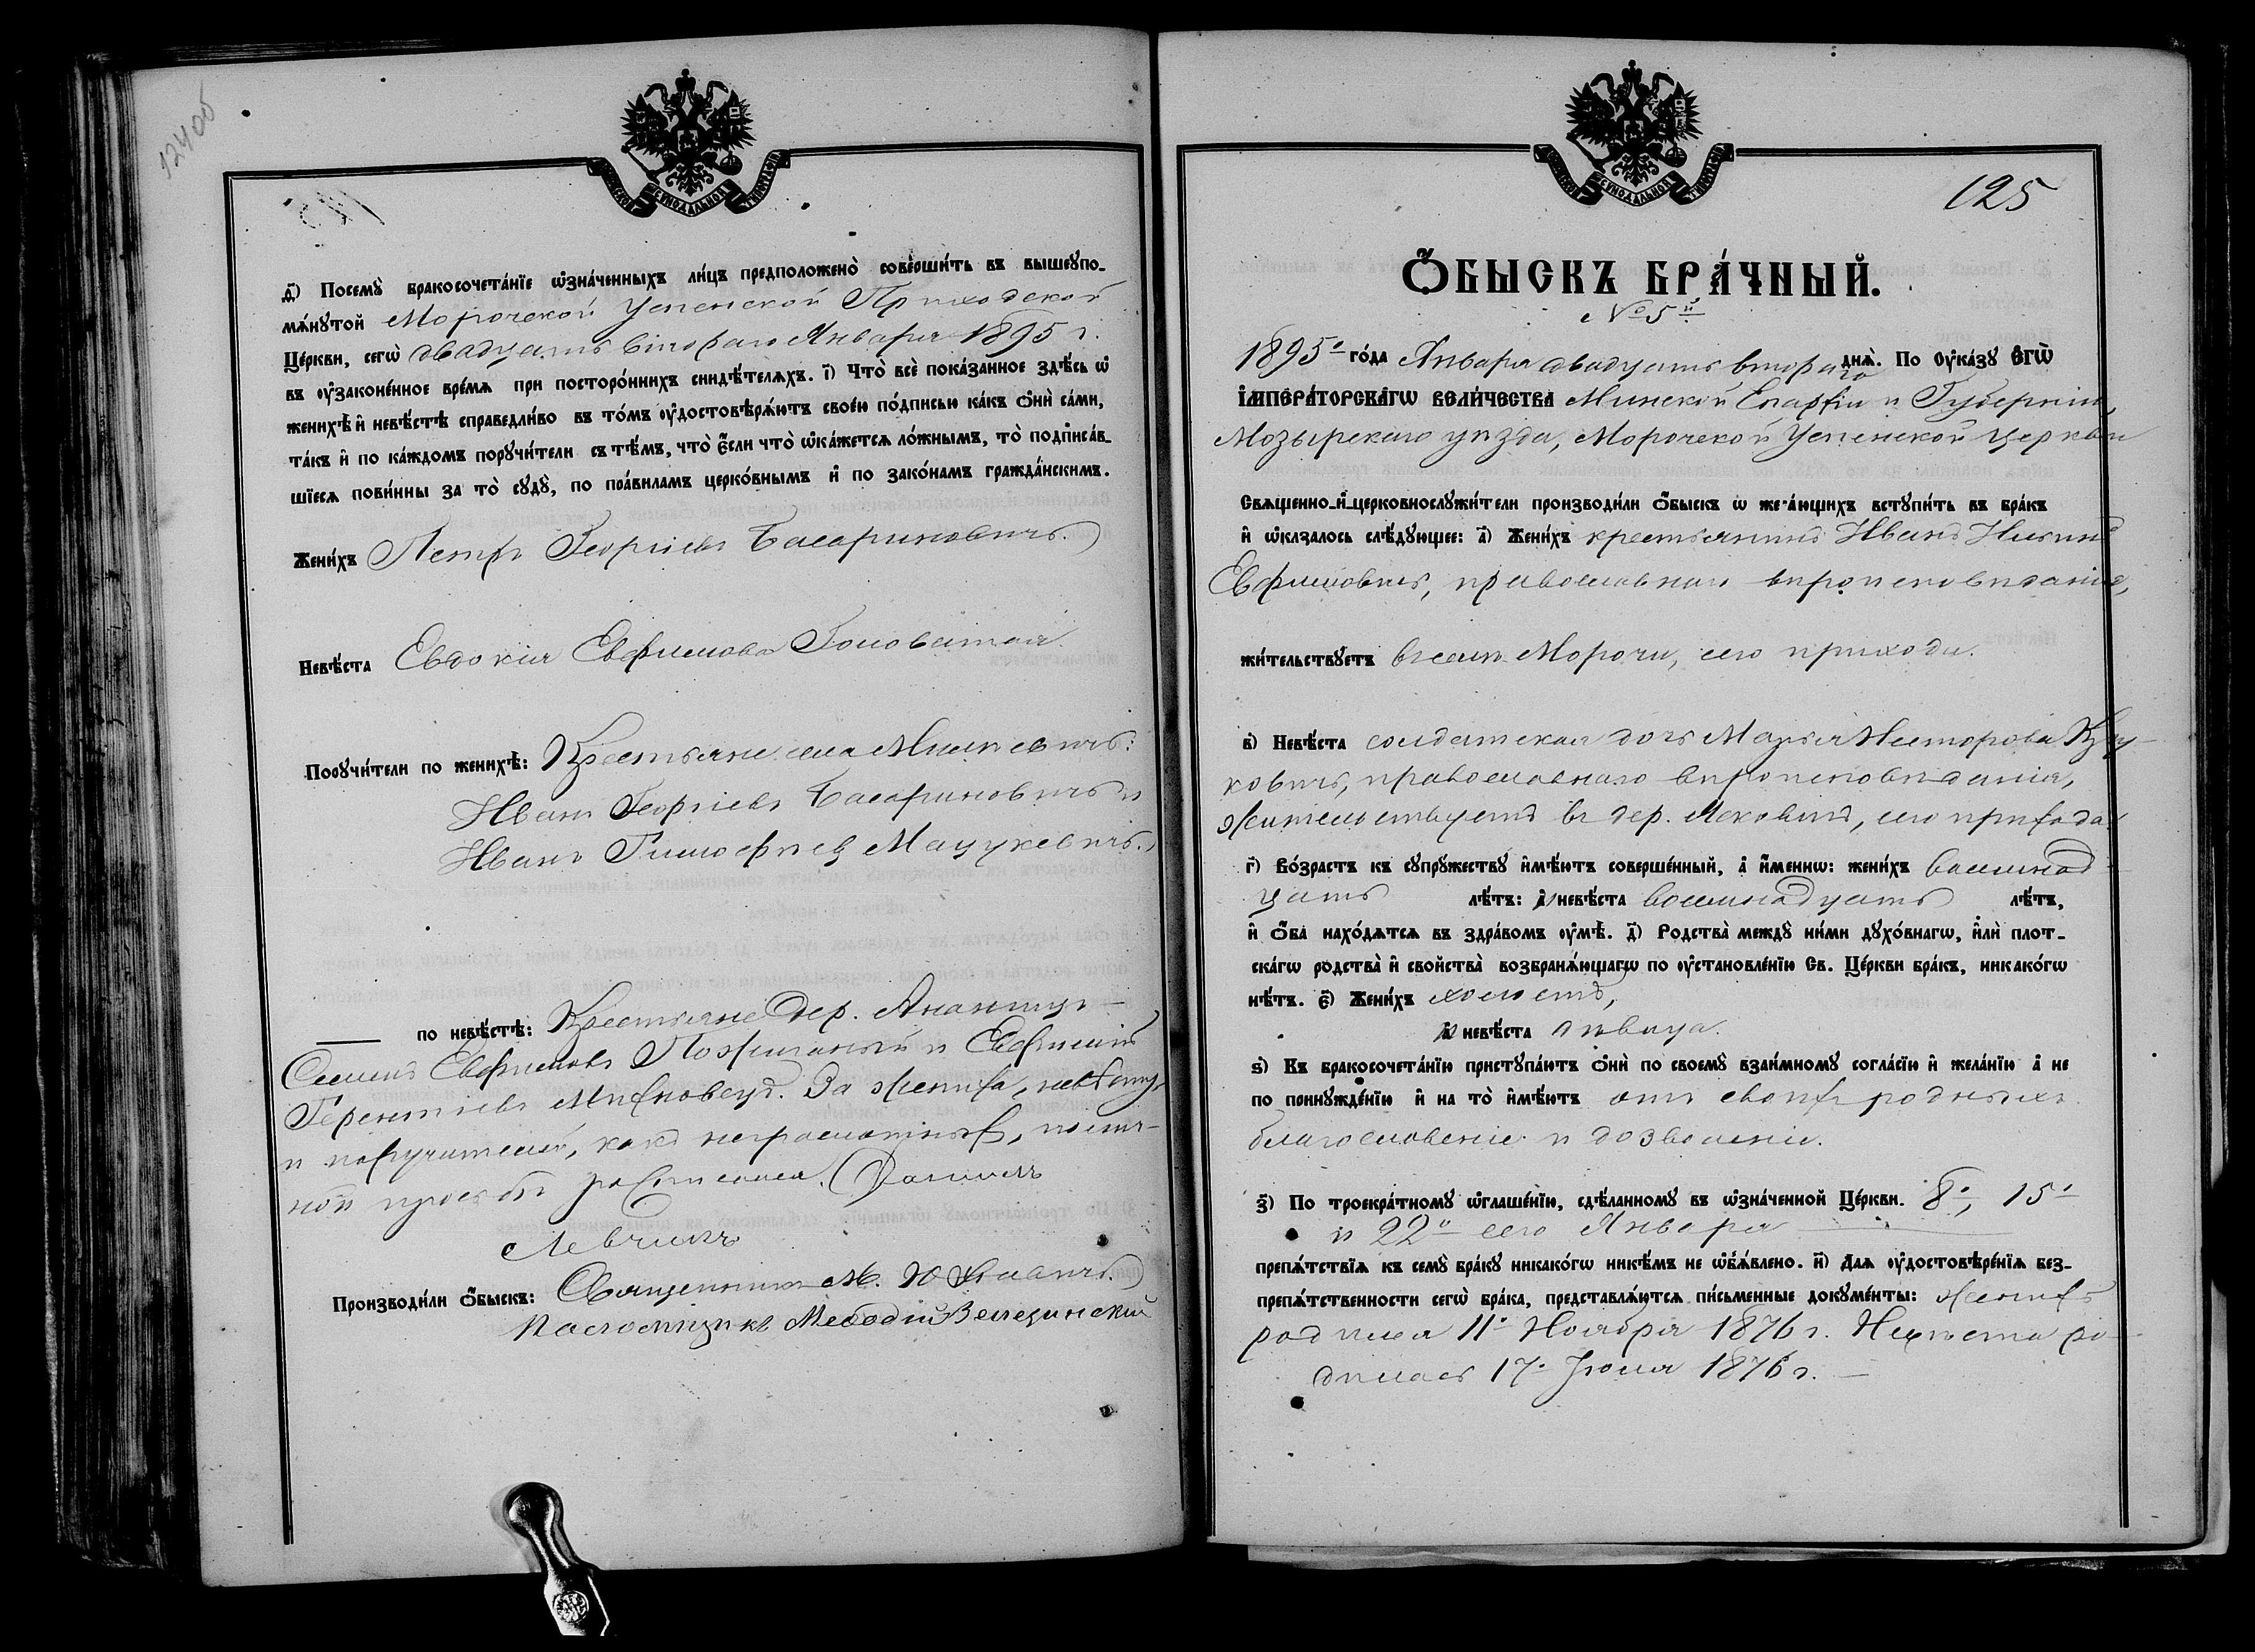 124об
ѳ҃) Посемꙋ̀ бракосочета́нїе ѡ҆зна́ченныхъ ли́цъ предположено̀ соверши́ть въ вышеꙋпо-
мѧ́нꙋтой Морочской Успенской Приходской
Це́ркви, сегѡ̀ двадцать втораго Января 1895 г.
въ ᲂу҆законе́нное вре́мѧ при посторо́ннихъ свидѣ́телѧхъ. і҃) Что̀ всѐ пока́занное здѣ́сь ѡ҆
женихѣ̀ и҆ невѣ́стѣ справедли́во въ то́мъ ᲂу҆достовѣрѧ́ютъ свое́ю по́дписью ка́къ ѻ҆нѝ са́ми,
та́къ и҆ по ка́ждомъ порꙋчи́тели съ тѣ́мъ, что̀ є҆́сли что̀ ѡ҆ка́жетсѧ ло́жнымъ, то̀ подписа́в-
шїесѧ пови́нны за то̀ сꙋдꙋ̀, по пра́виламъ церко́внымъ и҆ по зако́намъ гражда́нскимъ.
Жени́хъ Петръ Георгіевъ Басариновичъ.
Невѣ́ста Евдокія Евфимова Головатая
Порꙋчи́тели по женихѣ̀: Крестьяне села Милевичъ:
Иванъ Георгіевъ Басариновичъ и
Иванъ Тимофѣевъ Мацукевичъ.
по невѣ́стѣ: Крестьяне дер.
Семенъ Евфимовъ и Евфимій
Терентіевъ Миховецъ. За жениха, невѣсту
и поручителей, какъ неграмотныхъ, по лич-
ной просьбѣ росписался. Даніилъ
Левчикъ
Производи́ли ѻ҆́быскъ: Священникъ М.
Псаломщикъ Меѳодій
125
Ѻ҆́БЫСКЪ БРА́ЧНЫЙ.
№ 5й
1895го го́да Января двадцать втораго днѧ̀. По ᲂу҆ка́зꙋ Є҆ГѠ̀
І҆МПЕРА́ТОРСКАГѠ ВЕЛИ́ЧЕСТВА Минской Епархіи и Губерніи,
Мозырскаго уѣзда, Морочской Успенской церкви
Свѧще́нно-и҆-церковнослꙋжи́тели производи́ли ѻ҆́быскъ ѡ҆ жела́ющихъ встꙋпи́ть въ бра́къ
и҆ ѡ҆казалось слѣ́дꙋющее: а҃) Жени́хъ крестьянинъ Иванъ Ильинъ
Евфимовичъ, православнаго вѣроисповѣданія,
жи́тельствꙋетъ въ селѣ Морочи, сего прихода.
в҃) Невѣ́ста солдатская дочь Марья Несторова Кру-
ковичъ, православнаго вѣроисповѣданія,
жительствуетъ въ дер. Лековит, сего прихода.
г҃) Во́зрастъ къ сꙋпрꙋ́жествꙋ и҆мѣ́ютъ соверше́нный, а҆ и҆́меннѡ: жени́хъ восемнад-
цать лѣ́тъ: а҆ невѣ́ста восемнадцать лѣ́тъ,
и҆ ѻ҆́ба нахо́дѧтсѧ въ здра́вомъ ᲂу҆мѣ̀. д҃) Родства̀ междꙋ ни́ми дꙋхо́внагѡ, и҆лѝ плот-
ска́гѡ родства̀ и҆ сво́йства̀ возбранѧ́ющагѡ по ᲂу҆становле́нїю Св. Це́ркви бра́къ, никако́гѡ
нѣ́тъ. є҃) Жени́хъ холостъ,
а҆ невѣ́ста дѣвица.
ѕ҃) Къ бракосочета́нїю пристꙋпа́ютъ ѻ҆нѝ по своемꙋ̀ взаи́мномꙋ согла́сїю и҆ жела́нїю а҆ не
по принꙋжде́нїю и҆ на то̀ и҆мѣ́ютъ отъ своихъ родныхъ
благословеніе и дозволеніе.
з҃) По троекра́тномꙋ ѡ҆глаше́нїю, сдѣ́ланномꙋ въ ѡ҆зна́ченной Це́ркви. 8го, 15го
и 22го сего Января
препѧ́тствїѧ къ семꙋ̀ бра́кꙋ никако́гѡ никѣ́мъ не ѡ҆б̾ѧ́влено. и҃) Длѧ ᲂу҆достовѣре́нїѧ без-
препѧ́тственности сегѡ̀ бра́ка, представлѧ́ютсѧ пи́сьменные докꙋме́нты: женихъ
родился 11го Ноября 1876 г. Невѣста ро-
дилась 17го Іюля 1876 г.